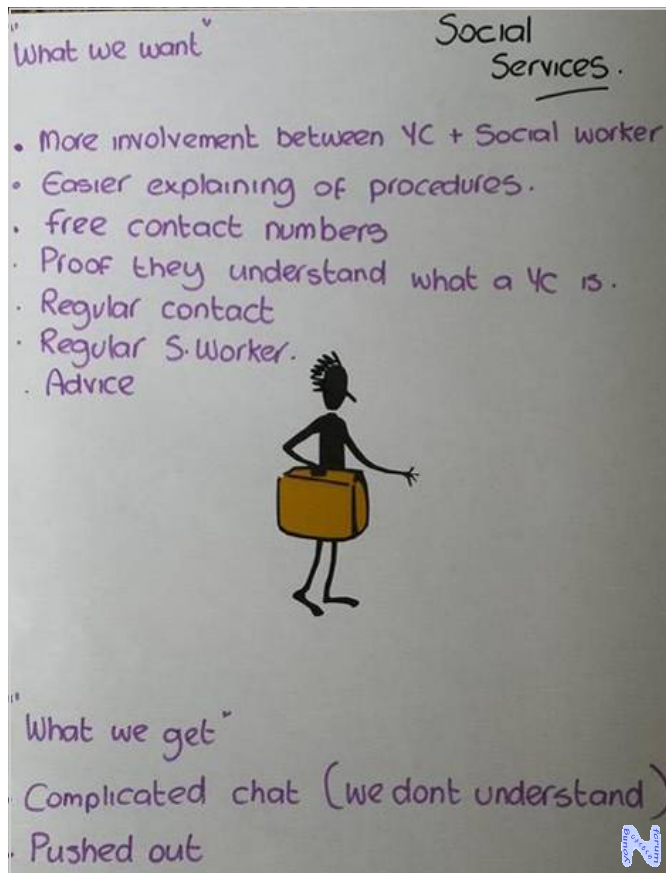 "What we want"
Social
Services.
• More involvement between YC + Social worker
• Easier explaining of procedures.
• free contact numbers
• Proof they understand what a YC is.
• Regular contact
• Regular S. Worker.
• Advice
"What we get"
• Complicated chat (we dont understand)
• Pushed out